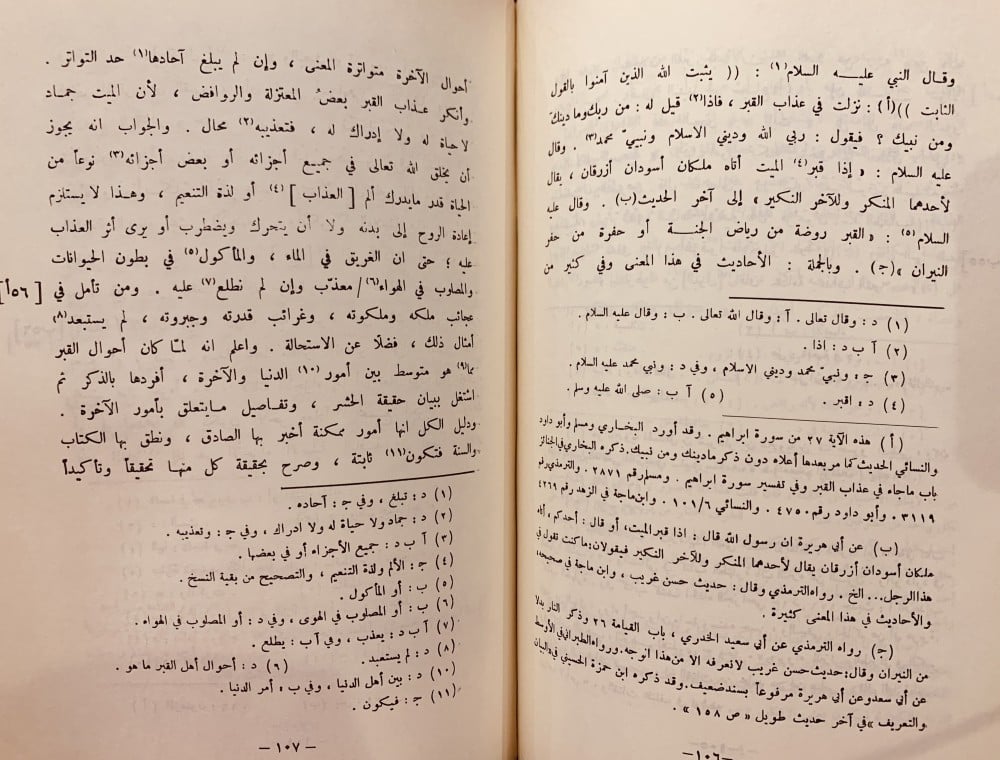 وقال النبي عليــه السلام(١) : (( يثبت الله الذين آمنوا بالقول
الثابت ))(أ) : نزلت في عذاب القبر ، فاذا(٢) قيل له : من ربك وما دينك
ومن نبيك ؟ فيقول : ربي الله وديني الاسلام ونبيّ محمد(٣) . وقال
عليه السلام : « إذا قبر(٤) الميت أتاه ملكان أسودان أزرقان ، يقال
لأحدهما المنكر وللآخر النكير » إلى آخر الحديث(ب) . وقال عليه
السلام(٥) : « القبر روضة من رياض الجنــة أو حفرة من حفر
النيران »(ج) . وبالجملة : الأحاديث في هذا المعنى وفي كثير من
(١) د : وقال تعالى . آ : وقال الله تعالى . ب : وقال عليه السلام .
(٢) آ ب د : اذا .
(٣) ج : ونبيّ محمد وديني الاسلام ، وفي د : ونبي محمد عليه السلام .
(٤) د : اقبر . (٥) آ ب : صلى الله عليه وسلم .
(أ) هذه الآية ٢٧ من سورة ابراهيم . وقد أورد البخــاري ومسلم وأبو داود
والنسائي الحديث كما مر بعدها أعلاه دون ذكر مادينك ومن نبيك . ذكره البخاري في الجنائز
باب ماجاء في عذاب القبر وفي تفسير سورة ابراهيم . ومسلم رقم ٢٨٧١ . والترمذي رقم
٣١١٩ . وأبو داود رقم ٤٧٥٠ . والنسائي ١٠١/٦ . وابن ماجة في الزهد رقم ٤٢٦٩
(ب) عن أبي هريرة ان رسول الله قال : اذا قبر الميت ، أو قال : أحدكم ، أتاه
ملكان أسودان أزرقان يقال لأحدهما المنكر وللآخر النكير فيقولان : ما كنت تقول في
هذا الرجل ... الخ . رواه الترمذي وقال : حديث حسن غريب ، وابن ماجة في صحيحه ،
والأحاديث في هذا المعنى كثيرة .
(ج) رواه الترمذي عن أبي سعيد الخدري ، باب القيامة ٢٦ وذكر النار بدلا
من النيران وقال : حديث حسن غريب لا نعرفه الا من هذا الوجه . ورواه الطبراني في الأوسط
عن أبي سعد وعن أبي هريرة مرفوعاً بسند ضعيف . وقد ذكره ابن حمزة الحسيني في « البيان
والتعريف » في آخر حديث طويل « ص ١٥٨ » .
— ١٠٦ —
أحوال الآخرة متواترة المعنى ، وإن لم يبلغ آحادها(١) حد التواتر .
وأنكر عذاب القبر بعضُ المعتزلة والروافض ، لأن الميت جمــاد
لا حياة له ولا إدراك له ، فتعذيبه(٢) محال . والجواب انه يجوز
أن يخلق الله تعالى في جميع أجزائه أو بعض أجزائه(٣) نوعاً من
الحياة قدر مايدرك ألم [ العذاب ](٤) أو لذة التنعيم ، وهــذا لا يستلزم
إعادة الروح إلى بدنه ولا أن يتحرك ويضطرب أو يرى أثر العذاب
عليه ؛ حتى ان الغريق في الماء ، والمأكول(٥) في بطون الحيوانات
والمصلوب في الهواء(٦)/ معذّب وإن لم نطلع(٧) عليه . ومن تأمل في [ ٥٦أ ]
عجائب ملكه وملكوته ، وغرائب قدرته وجبروته ، لم يستبعد(٨)
أمثال ذلك ، فضلًا عن الاستحالة . واعلم انه لمّا كان أحوال القبر
مما(٩) هو متوسط بين أمور(١٠) الدنيا والآخرة ، أفردها بالذكر ثم
اشتغل ببيان حقيقة الحشر ، وتفاصيل مــايتعلق بأمور الآخرة .
ودليل الكل انها أمور ممكنة أخبر بها الصادق ، ونطق بها الكتاب
والسنة فتكون(١١) ثابتة ، وصرح بحقيقة كل منهــا تحقيقاً وتأكيداً
(١) د : تبلغ ، وفي ج : آحاده .
(٢) د : جماد ولا حياة له ولا ادراك ، وفي ج : وتعذيبه .
(٣) آ ب د : جميع الأجزاء أو في بعضها .
(٤) ج : الألم ولذة التنعيم ، والتصحيح من بقية النسخ .
(٥) ب : أو المأكول .
(٦) ب : أو المصلوب في الهوى ، وفي د : أو المصلوب في الهواء .
(٧) آ ب د : يعذب ، وفي آ ب : يطلع .
(٨) د : لم يستبعد . (٩) د : أحوال أهل القبر ما هو .
(١٠) د : بين أهل الدنيا ، وفي ب ، أمر الدنيا .
(١١) ج : فيكون .
— ١٠٧ —